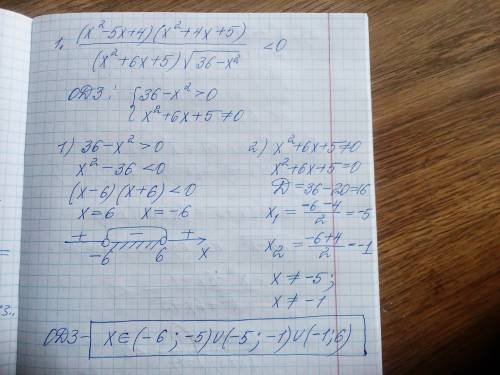 1. (x²-5x+4)(x²+4x+5)
(x²+6x+5)√36-x² <0
ОДЗ: {36-x²>0
{x²+6x+5≠0
1) 36-x²>0
x²-36<0
(x-6)(x+6)<0
x=6 x=-6
+ - +
-6 6 x
2) x²+6x+5≠0
x²+6x+5=0
D=36-20=16
x₁=(-6-4)/2=-5
x₂=(-6+4)/2=-1
x≠-5;
x≠-1
ОДЗ- x∈(-6;-5)∪(-5;-1)∪(-1;6)